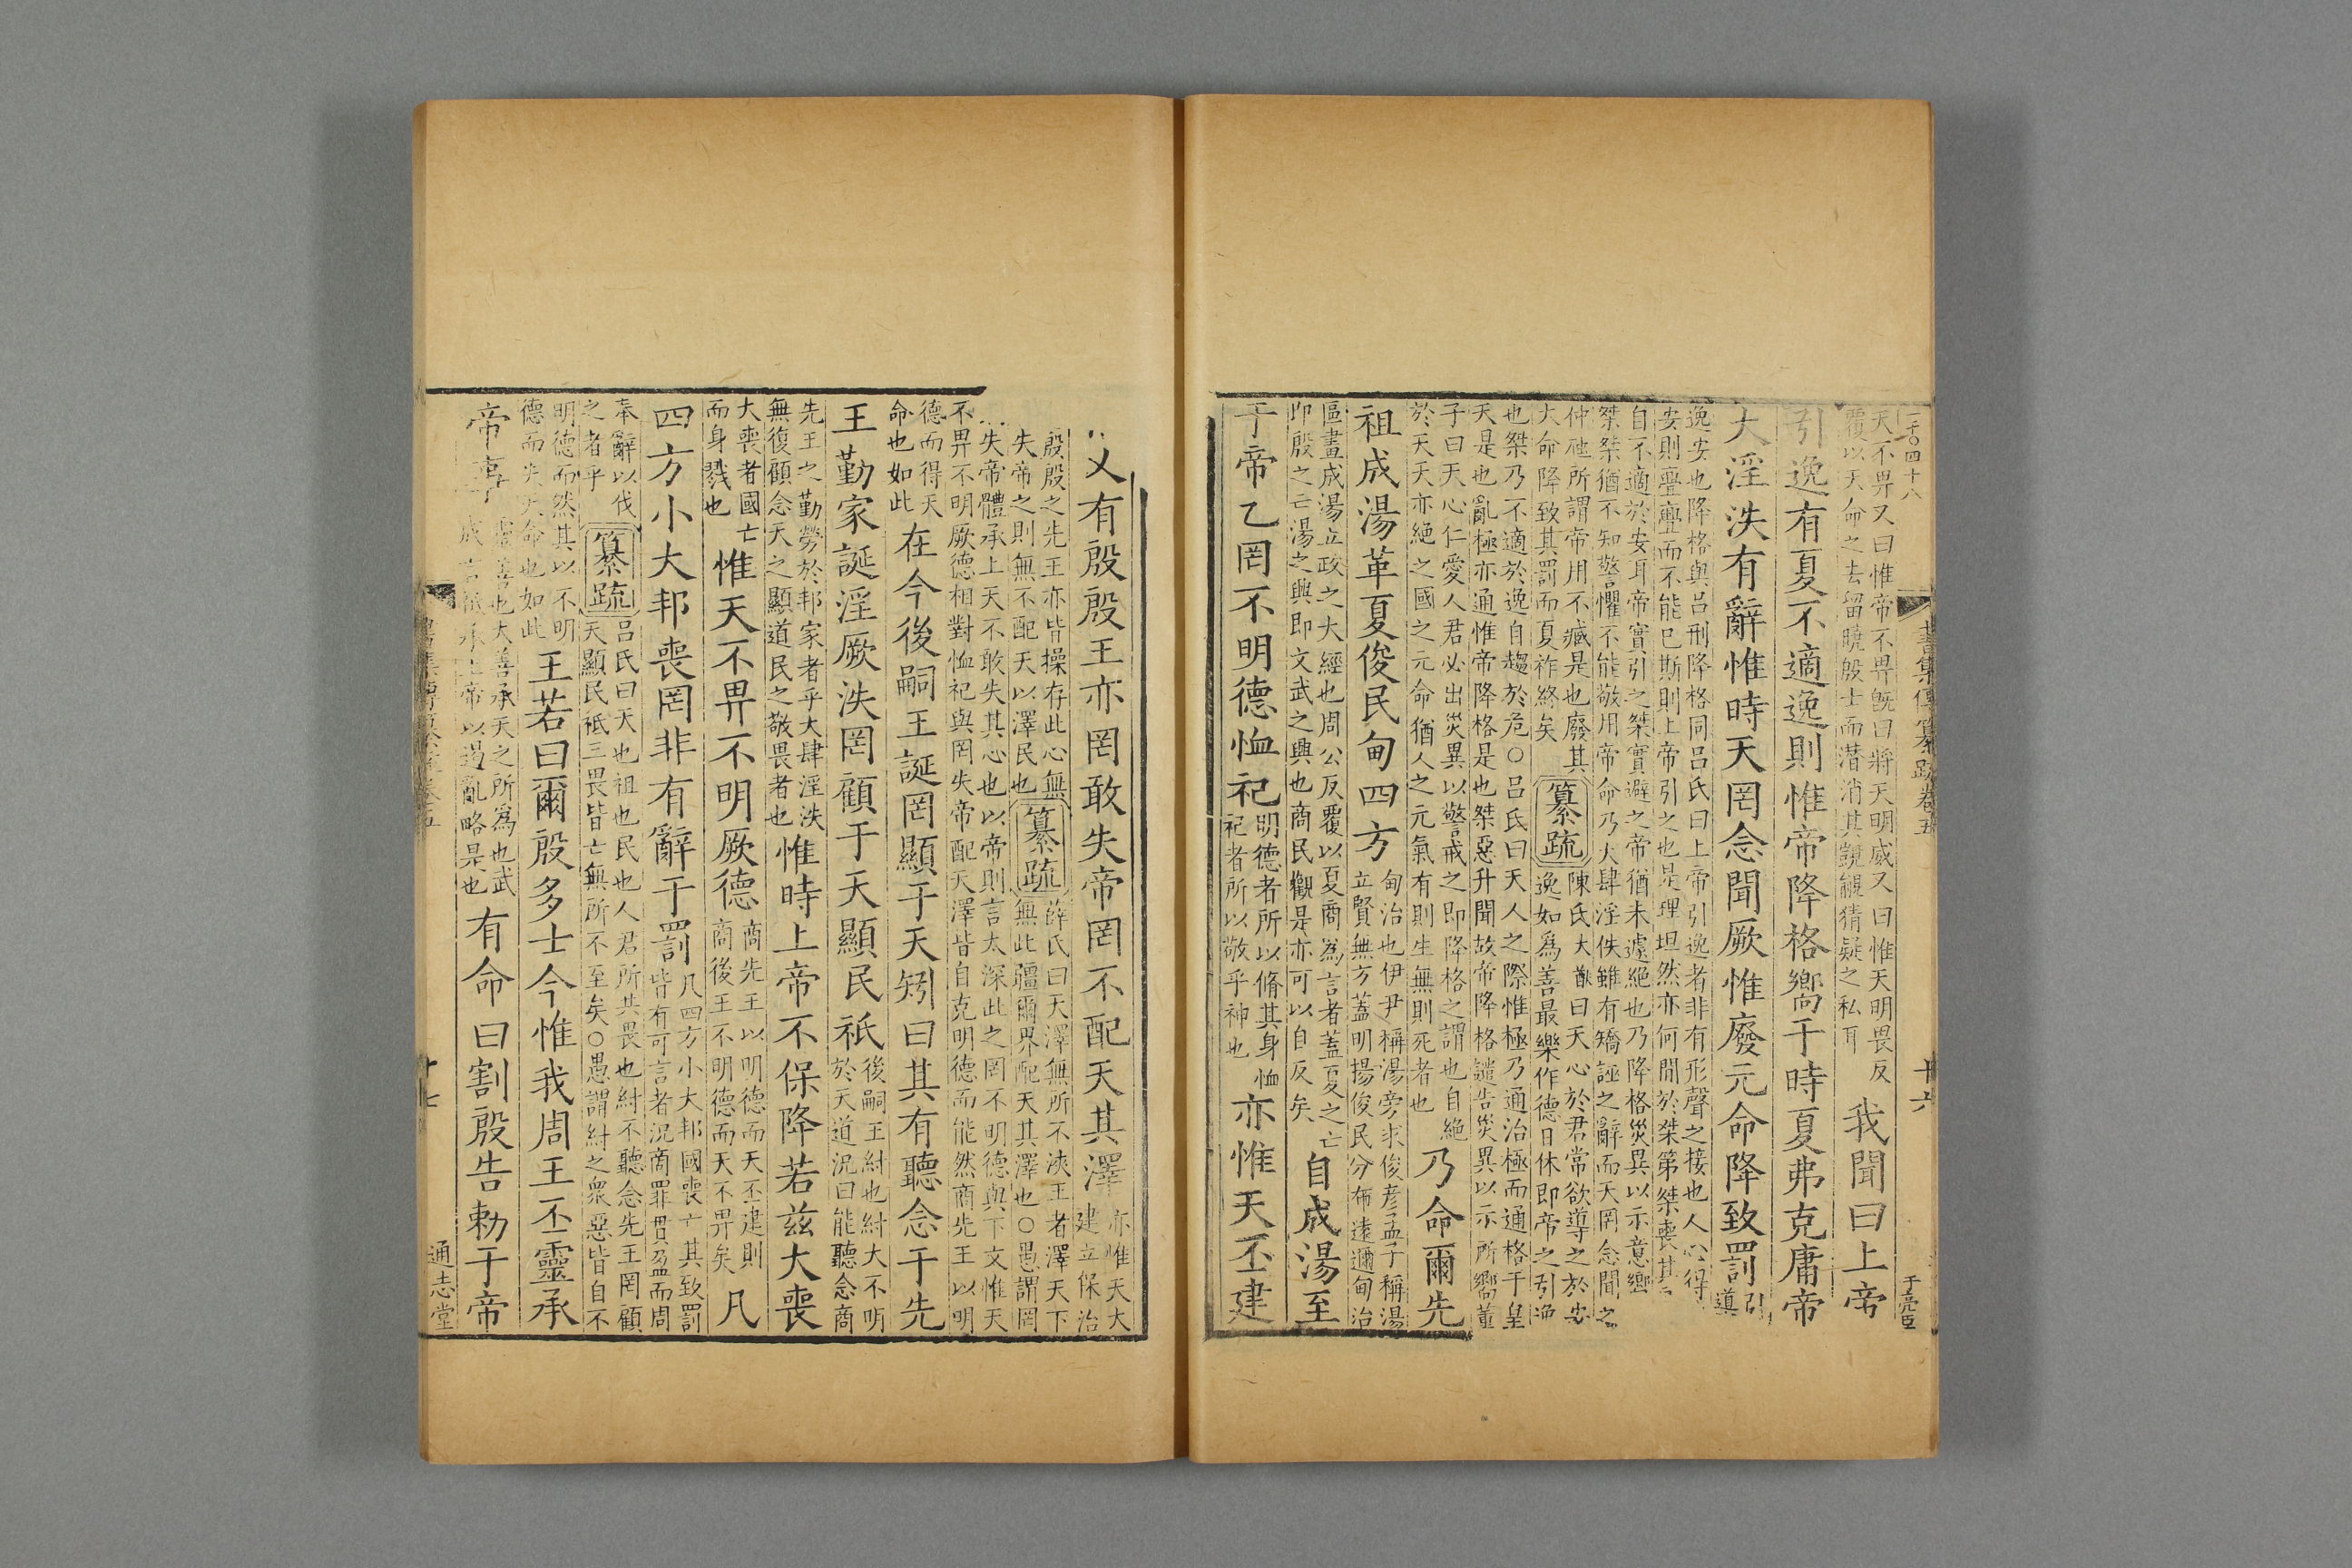 天不畀又曰惟帝不畀旣曰將天明威又曰惟天明畏反
覆以天命之去留曉殷士而潛消其覬覦猜疑之私耳
我聞曰上帝
引逸有夏不適逸則惟帝降格嚮于時夏弗克庸帝
大淫泆有辭惟時天罔念聞厥惟廢元命降致罰
引
導
逸安也降格與呂刑降格同呂氏曰上帝引逸者非有形聲之接也人心得
安則亹亹而不能已斯則上帝引之也是理坦然亦何間於桀第桀喪其
自不適於安耳帝實引之桀實避之帝猶未遽絕也乃降格災異以示意嚮
桀桀猶不知警懼不能敬用帝命乃大肆淫佚雖有矯誣之辭而天罔念聞之
仲虺所謂帝用不臧是也廢其
大命降致其罰而夏祚終矣
纂疏
陳氏大猷曰天心於君常欲導之於安
逸如爲善最樂作德日休即帝之引逸
也桀乃不適於逸自趨於危○呂氏曰天人之際惟極乃通治極而通格于皇
天是也亂極亦通惟帝降格是也桀惡升聞故帝降格譴告災異以示所嚮董
子曰天心仁愛人君必出災異以警戒之即降格之謂也自絕
於天天亦絕之國之元命猶人之元氣有則生無則死者也
乃命爾先
祖成湯革夏俊民甸四方
甸治也伊尹稱湯旁求俊彥孟子稱湯
立賢無方蓋明揚俊民分布遠邇甸治
區畫成湯立政之大經也周公反覆以夏商爲言者蓋夏之亡
即殷之亡湯之興即文武之興也商民觀是亦可以自反矣
自成湯至
于帝乙罔不明德恤祀
明德者所以脩其身恤
祀者所以敬乎神也
亦惟天丕建
乂有殷殷王亦罔敢失帝罔不配天其澤
亦惟天大
建立保治
殷殷之先王亦皆操存此心無
失帝之則無不配天以澤民也
纂疏
薛氏曰天澤無所不浹王者澤天下
無此疆爾界配天其澤也○愚謂罔
失帝體承上天不敢失其心也以帝則言太深此之罔不明德與下文惟天
不畀不明厥德相對恤祀與罔失帝配天澤皆自克明德而能然商先王以明
德而得天
命也如此
在今後嗣王誕罔顯于天矧曰其有聽念于先
王勤家誕淫厥泆罔顧于天顯民祇
後嗣王紂也紂大不明
於天道況曰能聽念商
先王之勤勞於邦家者乎大肆淫泆
無復顧念天之顯道民之敬畏者也
惟時上帝不保降若茲大喪
大喪者國亡
而身戮也
惟天不畀不明厥德
商先王以明德而天丕建則
商後王不明德而天不畀矣
凡
四方小大邦喪罔非有辭于罰
凡四方小大邦國喪亡其致罰
皆有可言者況商罪貫盈而周
奉辭以伐
之者乎
纂疏
呂氏曰天也祖也民也人君所共畏也紂不聽念先王罔顧
天顯民祇三畏皆亡無所不至矣○愚謂紂之衆惡皆自不
明德而然其以不明
德而失天命也如此
王若曰爾殷多士今惟我周王丕靈承
帝事
靈善也大善承天之所爲也武
成言祇承上帝以遏亂略是也
有命曰割殷告勅于帝
書集傳纂疏卷五
廿六
于亮臣
十七
通志堂